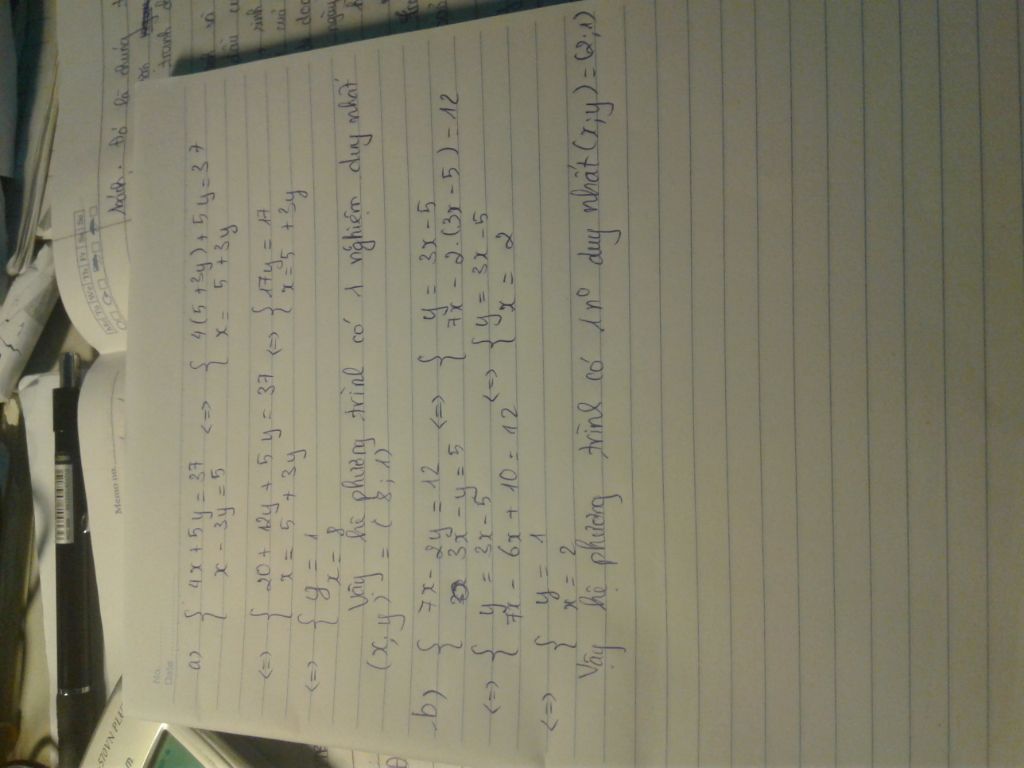 No.
Date
a) { 4x + 5y = 37 <=> { 4(5+3y) + 5y = 37
x - 3y = 5 x = 5 + 3y
<=> { 20 + 12y + 5y = 37 <=> { 17y = 17
x = 5 + 3y x = 5 + 3y
<=> { y = 1
x = 8
Vậy hệ phương trình có 1 nghiệm duy nhất
(x, y) = (8; 1)
b) { 7x - 2y = 12 <=> { y = 3x - 5
3x - y = 5 7x - 2.(3x - 5) = 12
<=> { y = 3x - 5 <=> { y = 3x - 5
7x - 6x + 10 = 12 x = 2
<=> { y = 1
x = 2
Vậy hệ phương trình có 1n⁰ duy nhất (x, y) = (2; 1)
Memo no.